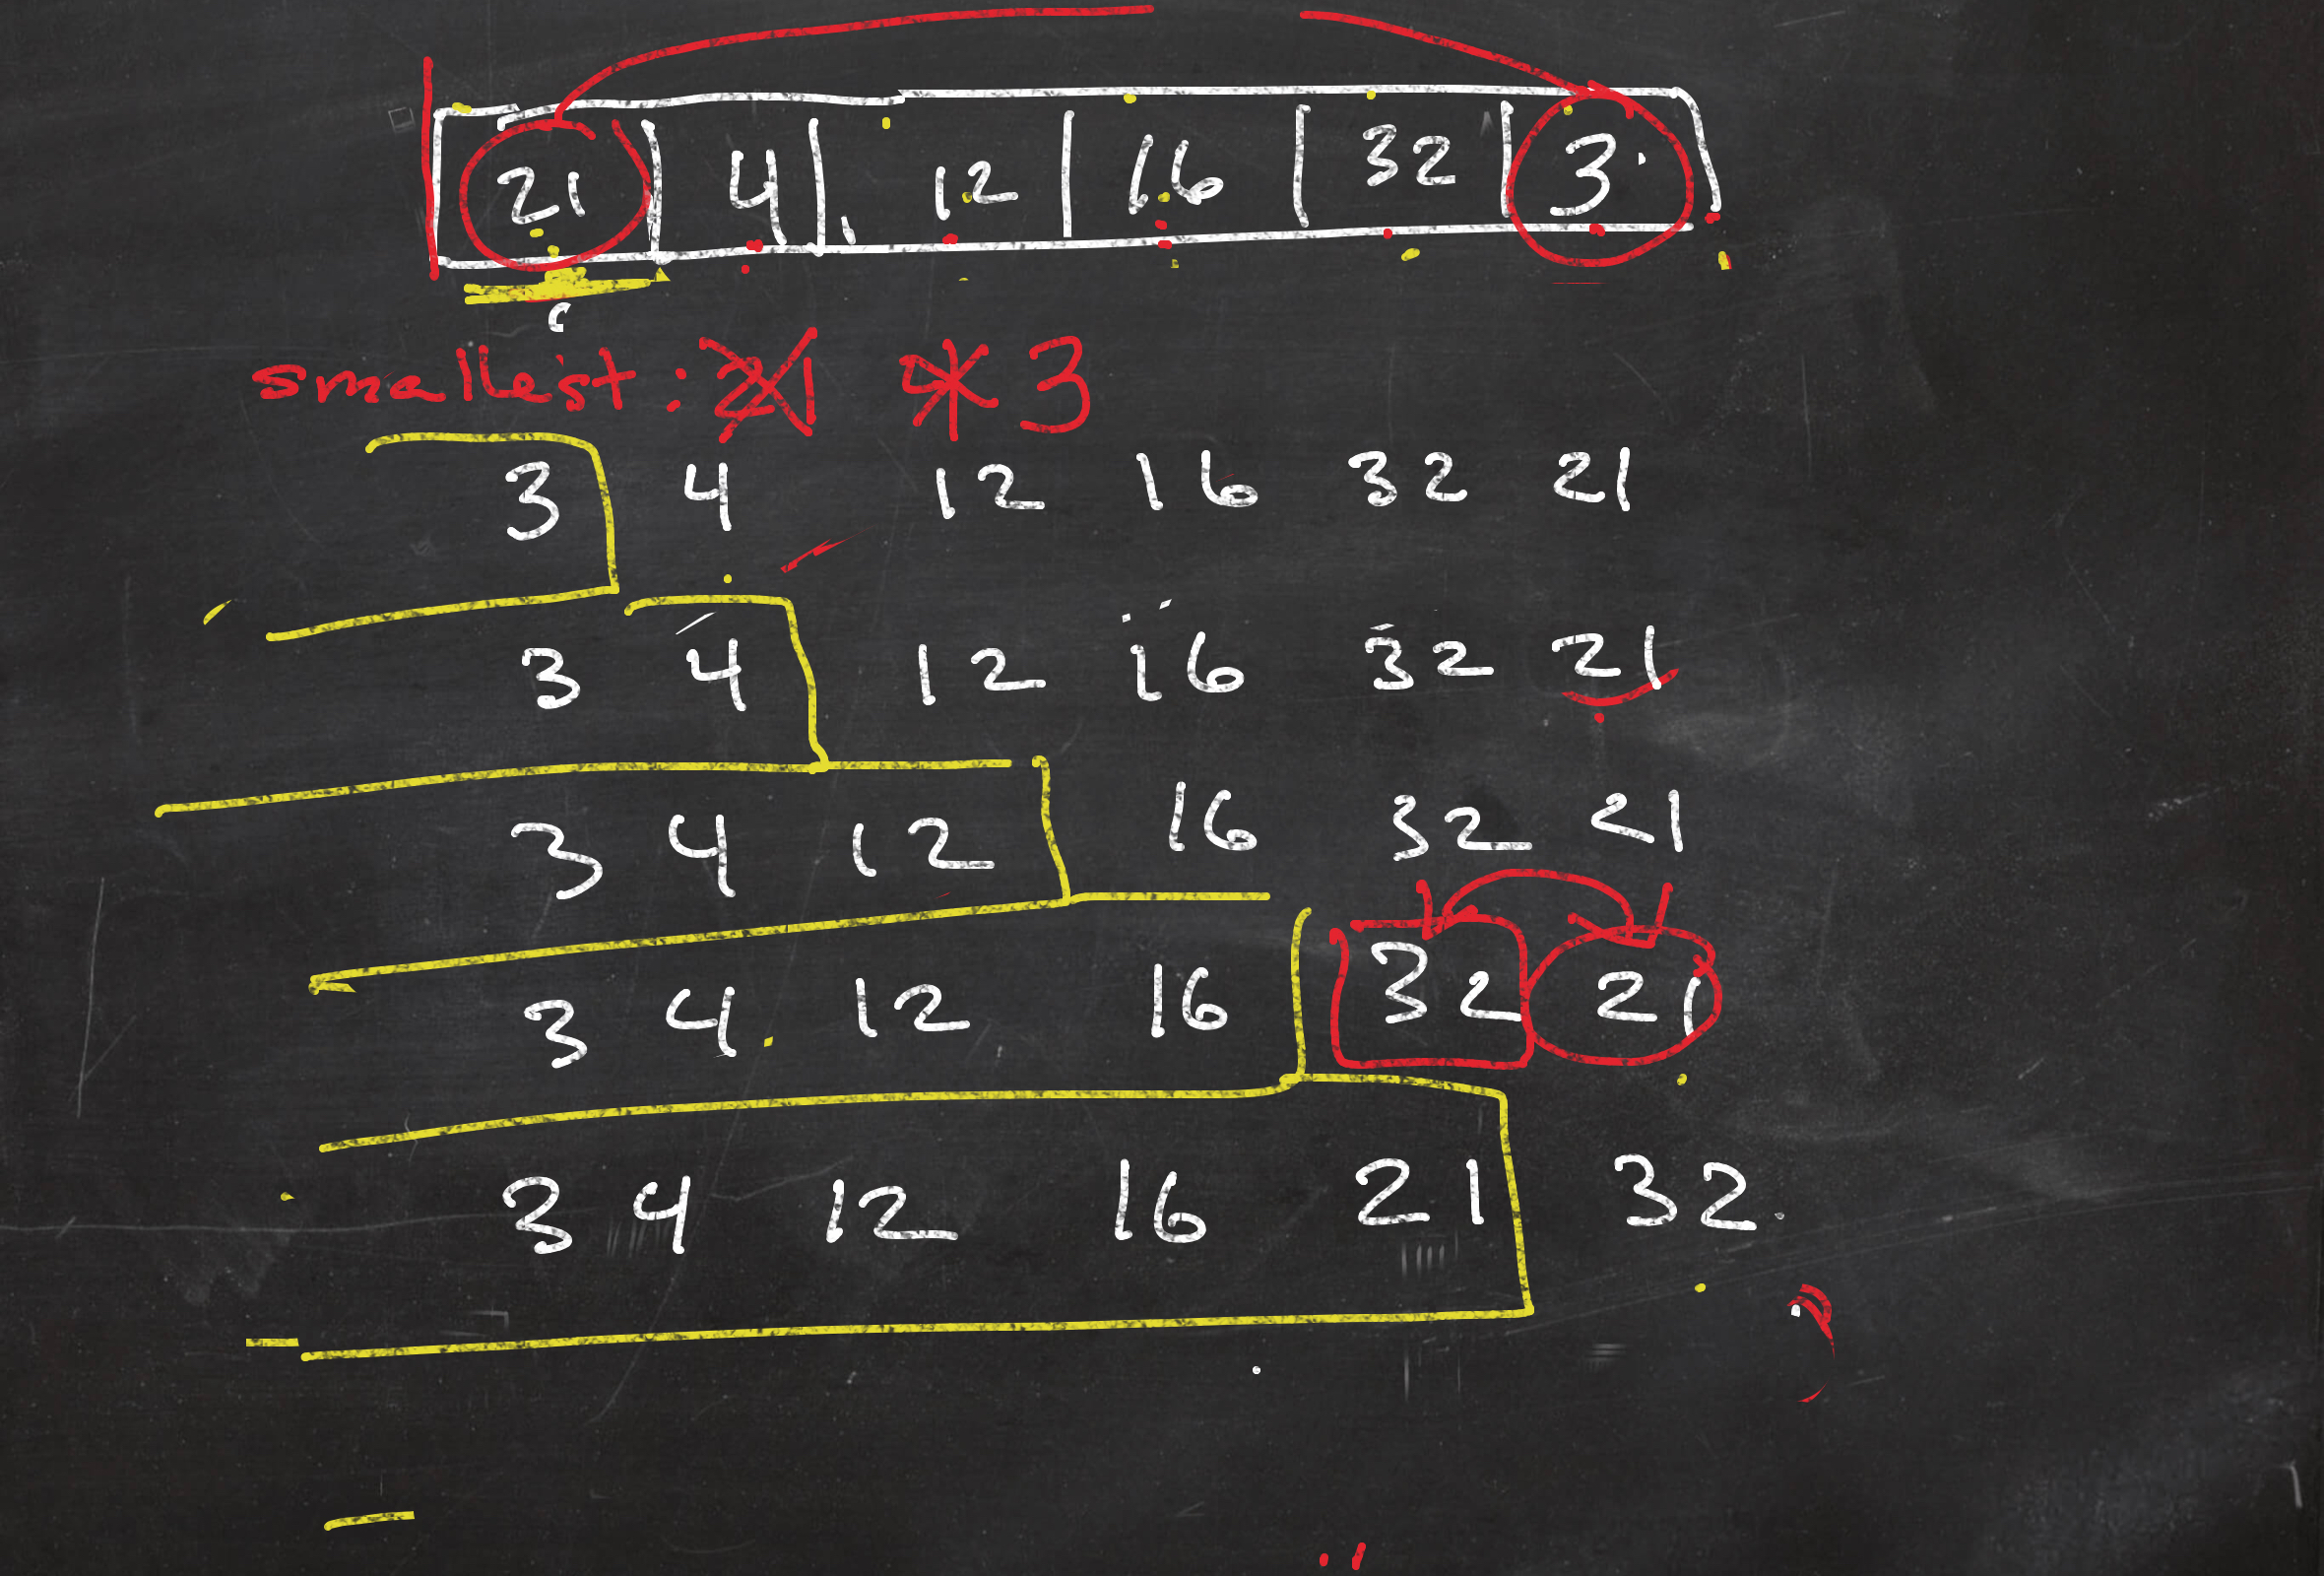 21 4 12 16 32 3
smallest: 21 4 3
3 4 12 16 32 21
3 4 12 16 32 21
3 4 12 16 32 21
3 4 12 16 32 21
3 4 12 16 21 32